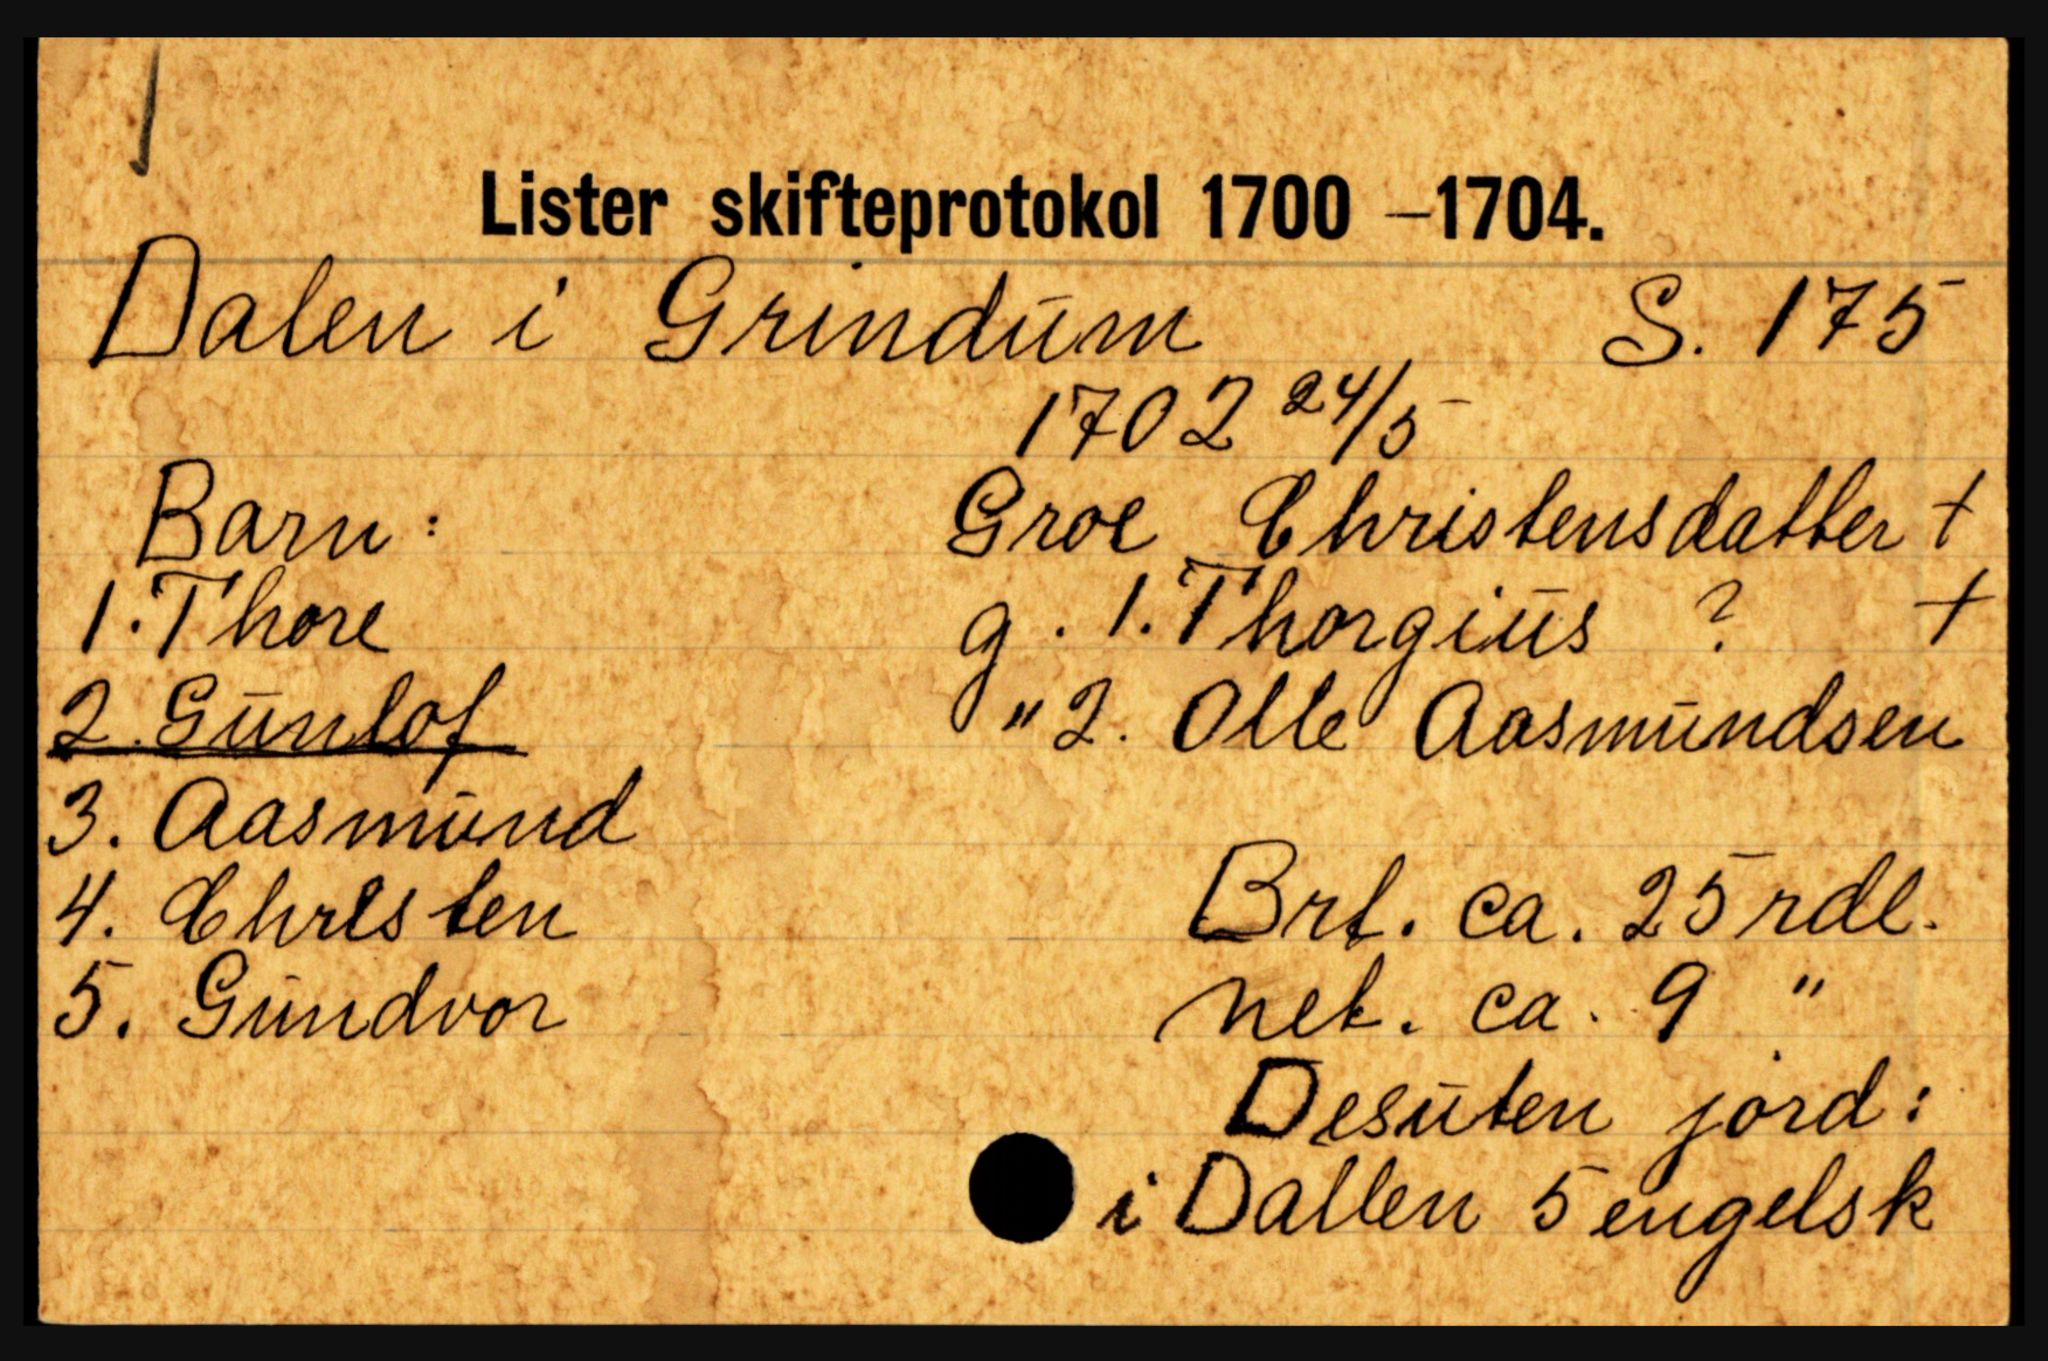 Lister skifteprotokol 1700 –1704.
Dalen i Grindum S. 175
1702 24/5
Barn: Groe Christensdatter +
1. Thore g. 1. Thorgius ? +
2. Gunlof " 2. Olle Aasmundsen
3. Aasmund
4. Christen Brt. ca. 25 rdl.
5. Gundvor net. ca. 9 "
Desuten jord:
i Dallen 5 engelsk